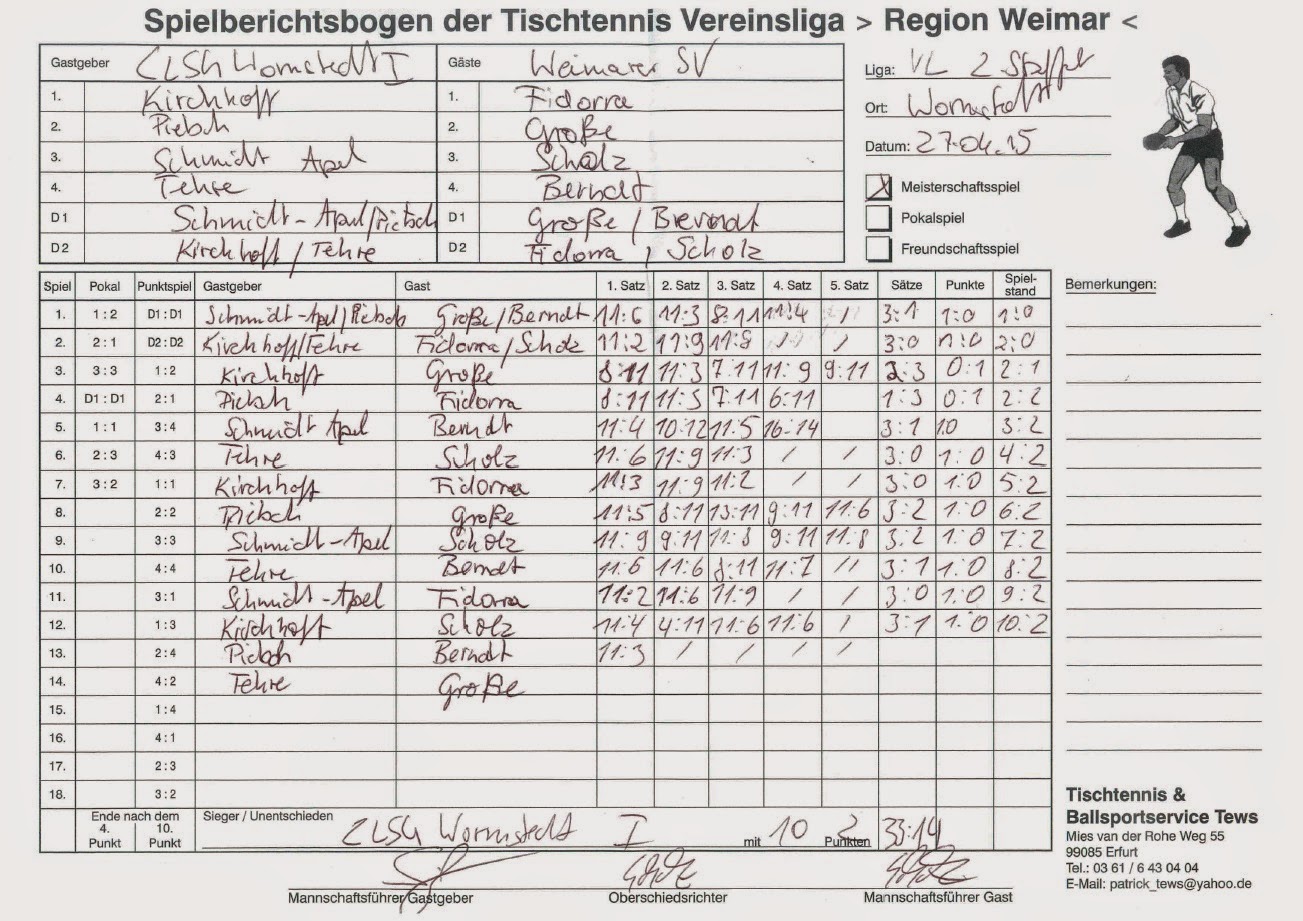 Spielberichtsbogen der Tischtennis Vereinsliga > Region Weimar <
Gastgeber CLSG Wormstedt I Gäste Weimarer SV
1. Kirchhoff 1. Fidorra
2. Pietsch 2. Große
3. Schmidt Apel 3. Scholz
4. Tehre 4. Berndt
D1 Schmidt-Apel/Pietsch D1 Große / Berndt
D2 Kirchhoff / Tehre D2 Fidorra / Scholz
Liga: VL 2 Staffel
Ort: Wormstedt
Datum: 27.04.15
X Meisterschaftsspiel
Pokalspiel
Freundschaftsspiel
Spiel Pokal Punktspiel Gastgeber Gast 1. Satz 2. Satz 3. Satz 4. Satz 5. Satz Sätze Punkte Spiel-stand
1. 1:2 D1:D1 Schmidt-Apel/Pietsch Große/Berndt 11:6 11:3 8:11 11:4 / 3:1 1:0 1:0
2. 2:1 D2:D2 Kirchhoff/Tehre Fidorra/Scholz 11:2 11:9 11:8 / / 3:0 1:0 2:0
3. 3:3 1:2 Kirchhoff Große 8:11 11:3 7:11 11:9 9:11 2:3 0:1 2:1
4. D1:D1 2:1 Pietsch Fidorra 8:11 11:5 7:11 6:11 1:3 0:1 2:2
5. 1:1 3:4 Schmidt Apel Berndt 11:4 10:12 11:5 16:14 3:1 10 3:2
6. 2:3 4:3 Tehre Scholz 11:6 11:9 11:3 / / 3:0 1:0 4:2
7. 3:2 1:1 Kirchhoff Fidorra 11:3 11:9 11:2 / / 3:0 1:0 5:2
8. 2:2 Pietsch Große 11:5 8:11 13:11 9:11 11:6 3:2 1:0 6:2
9. 3:3 Schmidt-Apel Scholz 11:9 9:11 11:8 9:11 11:8 3:2 1:0 7:2
10. 4:4 Tehre Berndt 11:6 11:6 8:11 11:7 // 3:1 1:0 8:2
11. 3:1 Schmidt-Apel Fidorra 11:2 11:6 11:9 / / 3:0 1:0 9:2
12. 1:3 Kirchhoff Scholz 11:4 4:11 11:6 11:6 / 3:1 1:0 10:2
13. 2:4 Pietsch Berndt 11:3 / / / /
14. 4:2 Tehre Große
15. 1:4
16. 4:1
17. 2:3
18. 3:2
Bemerkungen:
Ende nach dem 4. Punkt 10. Punkt
Sieger / Unentschieden CLSG Wormstedt I mit 10 2 Punkten 33:14
Mannschaftsführer Gastgeber Oberschiedsrichter Mannschaftsführer Gast
Tischtennis &
Ballsportservice Tews
Mies van der Rohe Weg 55
99085 Erfurt
Tel.: 03 61 / 6 43 04 04
E-Mail: patrick_tews@yahoo.de